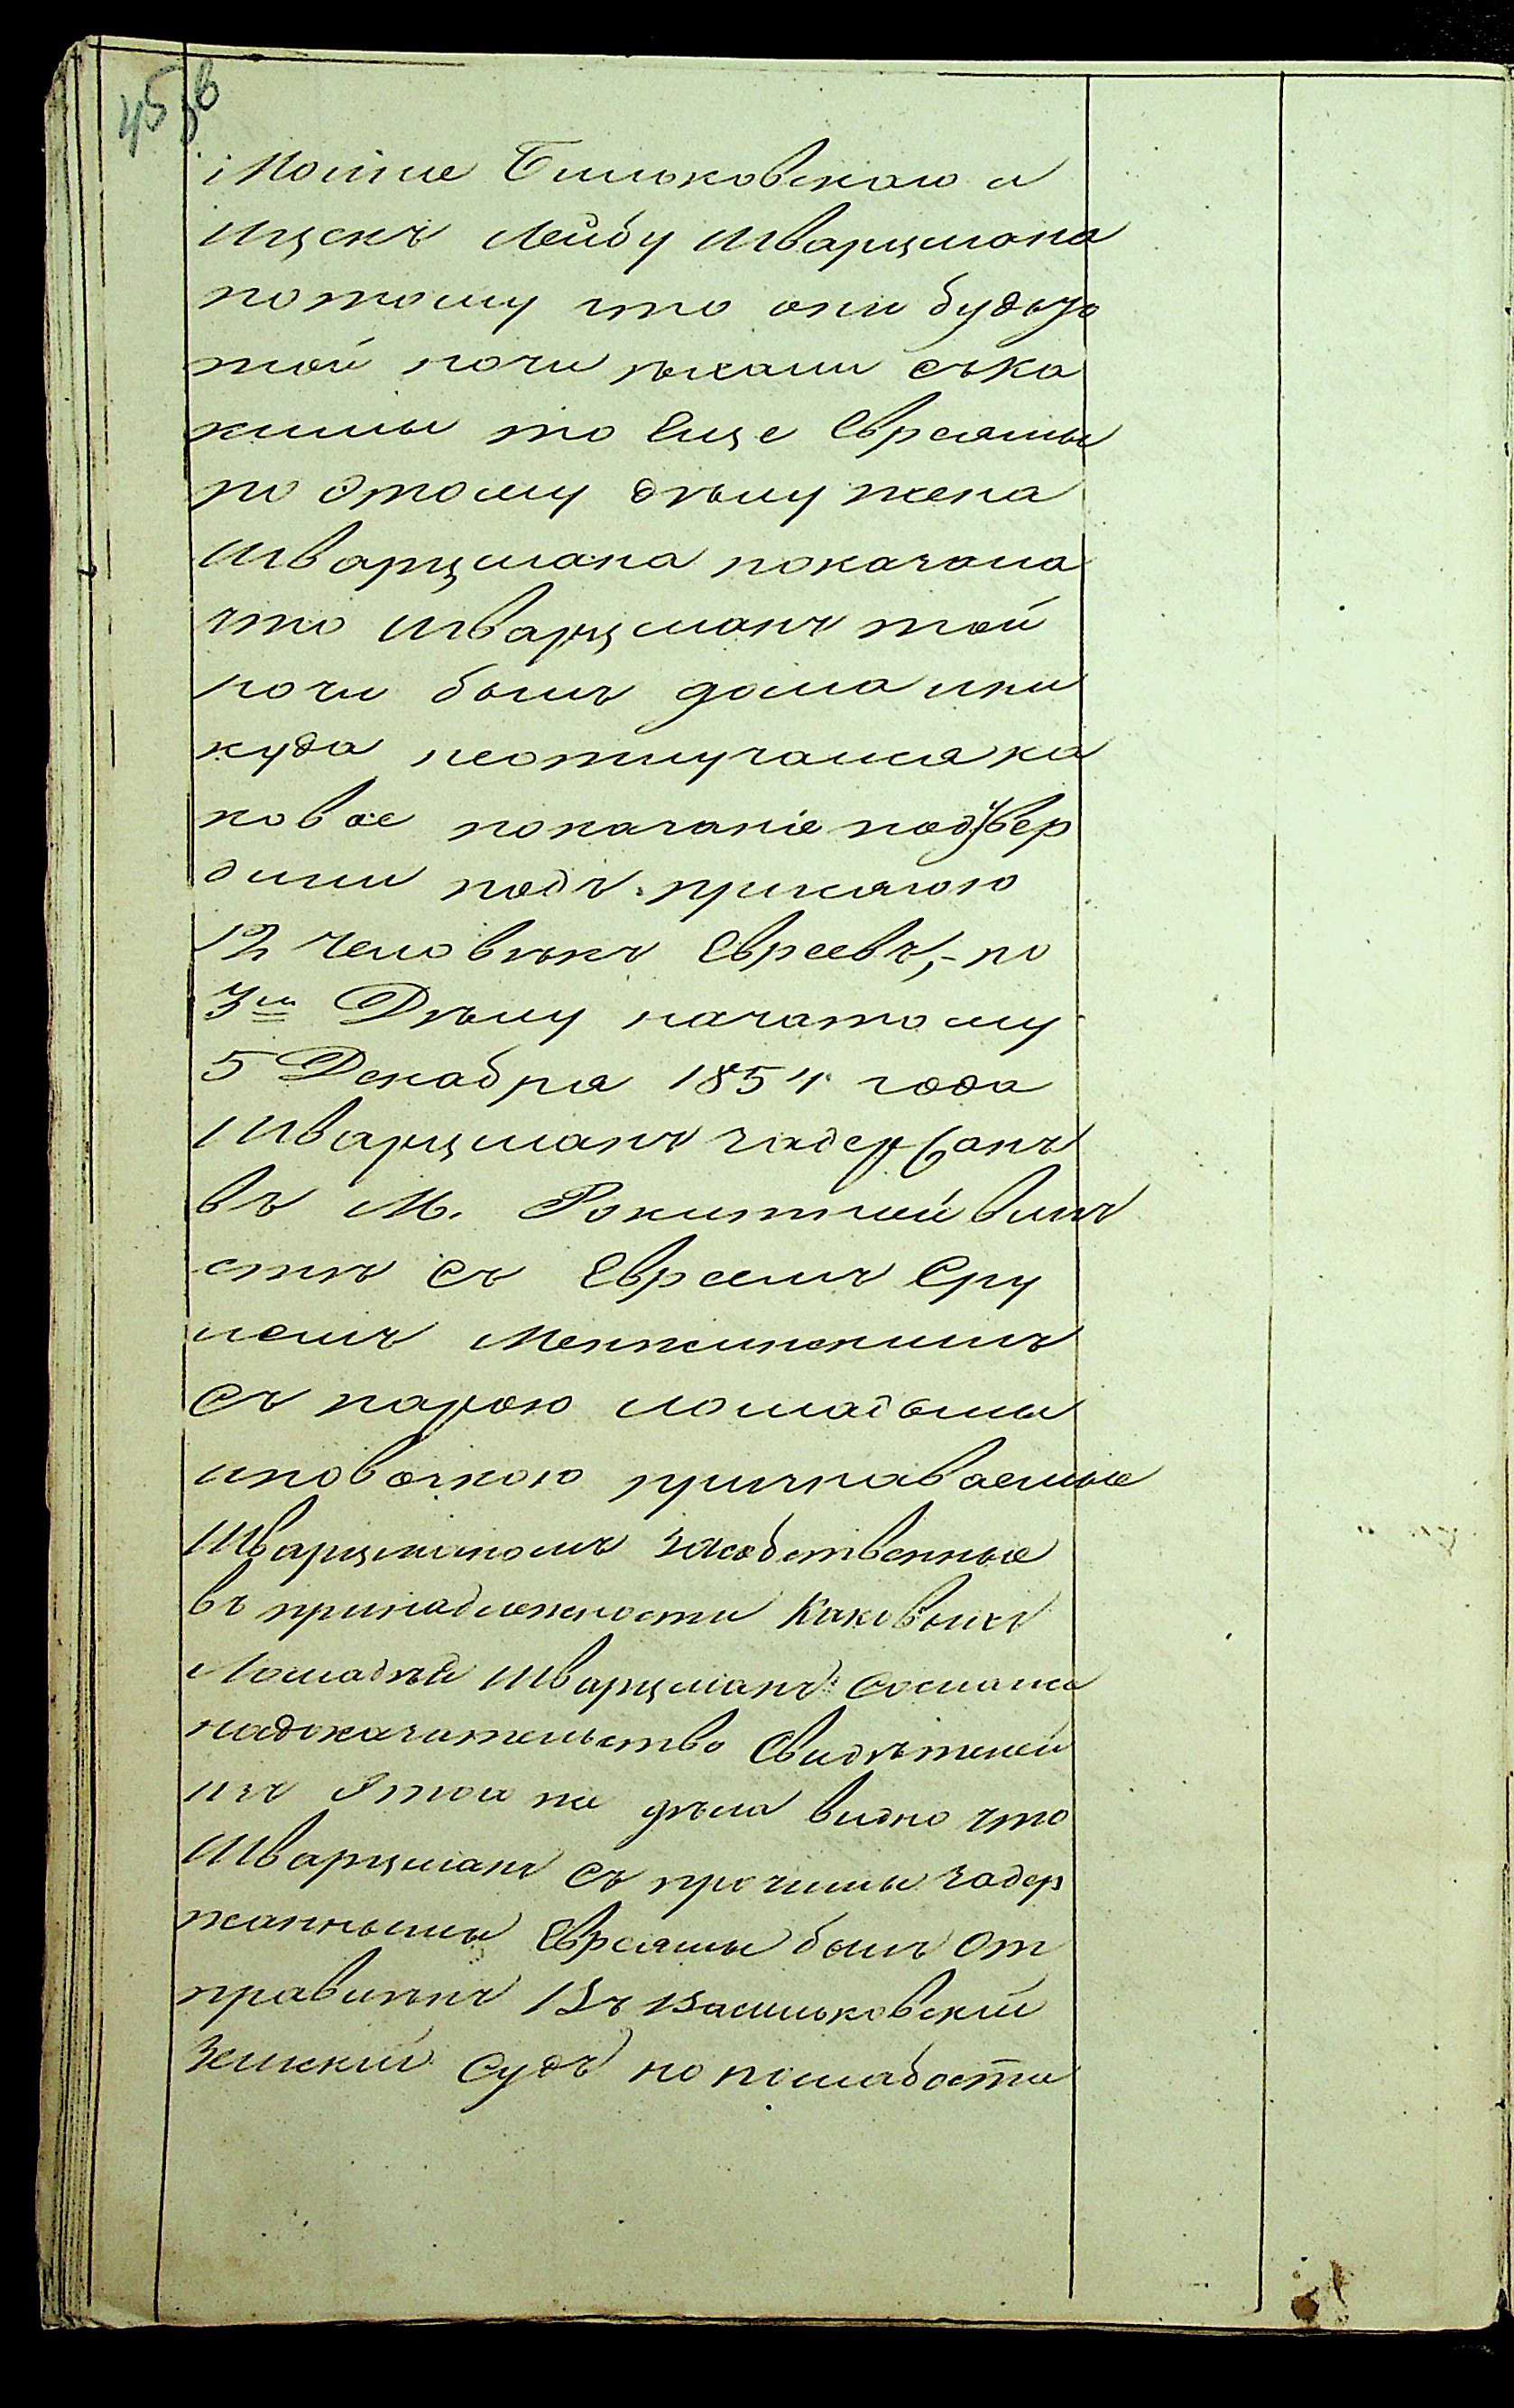 45 об
Мошке Билоковскаго и
Ицекъ Лейбу Шварцмана
потому что они будьто
той ночи ѣхали съка
кимы то Еще Евреямы
по этому дѣлу жена
Шварцмана показала
что Шварцманъ той
ночи былъ дома ини
куда неотлучался ка
ковое показаніе подтвер
дили подъ присягою
12 человѣкъ Евреевъ,- по
3му Дѣлу начатому
5 Декабря 1854 года
Шварцманъ задержанъ
въ М. Рокитной вмѣ
стѣ съ Евреемъ Сру
лемъ Менжинскимъ
съ парою лошадьмы
иповозкою признаваемые
Шварцманомъ засобственные
въ принадлежности каковыхъ
Лошадей Шварцманъ сослался
надоказательство Свидѣтелей
изъ Этого же дѣла видно что
Шварцманъ съ прочимы задер
жаннымы Евреямы былъ От
правленъ Въ Васильковскій
Земский Судъ но послабости